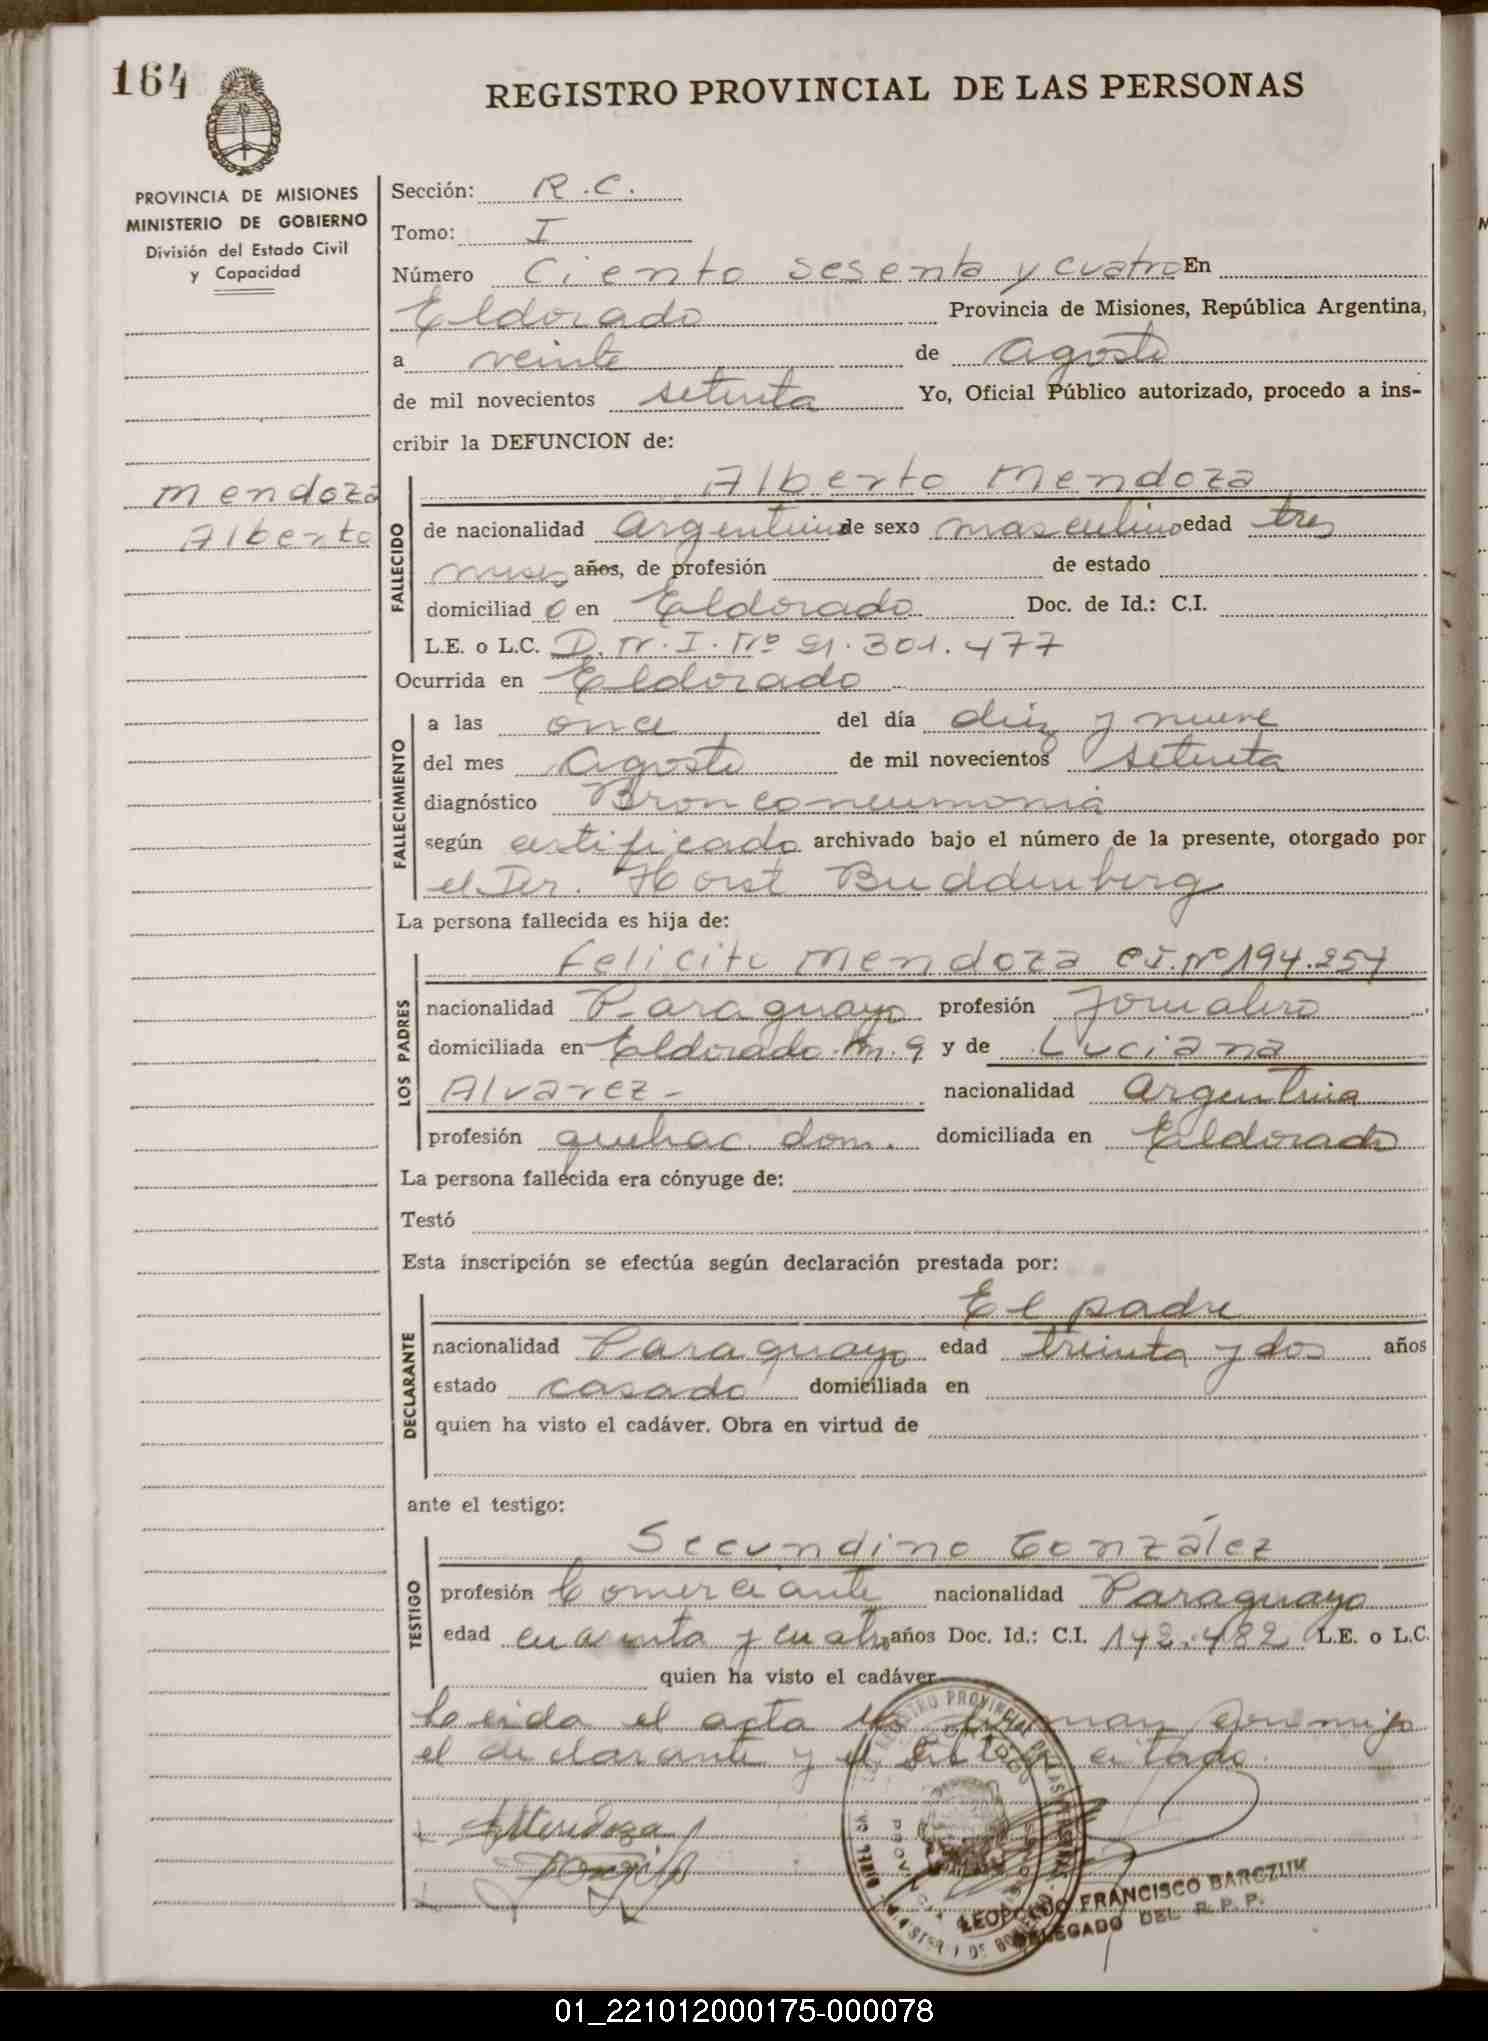 164
REGISTRO PROVINCIAL DE LAS PERSONAS
PROVINCIA DE MISIONES
MINISTERIO DE GOBIERNO
División del Estado Civil
y Capacidad
Mendoza
Alberto
Sección: R.C.
Tomo: I
Número Ciento sesenta y cuatro En
Eldorado Provincia de Misiones, República Argentina,
a veinte de agosto
de mil novecientos setenta Yo, Oficial Público autorizado, procedo a ins-
cribir la DEFUNCION de:
FALLECIDO
Alberto Mendoza
de nacionalidad argentina de sexo masculino edad tres
meses años, de profesión de estado
domiciliad o en Eldorado Doc. de Id.: C.I.
L.E. o L.C. D.N.I. Nº 21.301.477
Ocurrida en Eldorado
FALLECIMIENTO
a las once del día diez y nueve
del mes Agosto de mil novecientos setenta
diagnóstico Bronconeumonia
según certificado archivado bajo el número de la presente, otorgado por
el Dr. Horst Buddenberg
La persona fallecida es hija de:
LOS PADRES
Felicito Mendoza C.I. Nº 194.257
nacionalidad Paraguayo profesión Jornalero
domiciliada en Eldorado. Km. 9 y de Luciana
Alvarez- nacionalidad argentina
profesión quehac. dom. domiciliada en Eldorado
La persona fallecida era cónyuge de:
Testó
Esta inscripción se efectúa según declaración prestada por:
DECLARANTE
El padre
nacionalidad Paraguayo edad treinta y dos años
estado casado domiciliada en
quien ha visto el cadáver. Obra en virtud de
ante el testigo:
TESTIGO
Secundino González
profesión Comerciante nacionalidad Paraguayo
edad cuarenta y cuatro años Doc. Id.: C.I. 142.482 L.E. o L.C.
quien ha visto el cadáver
Leida el acta la firman conmigo
el declarante y el testigo citado.
FMendoza
LEOPOLDO FRANCISCO BARCZUK
DELEGADO DEL R. P. P.
01_221012000175-000078